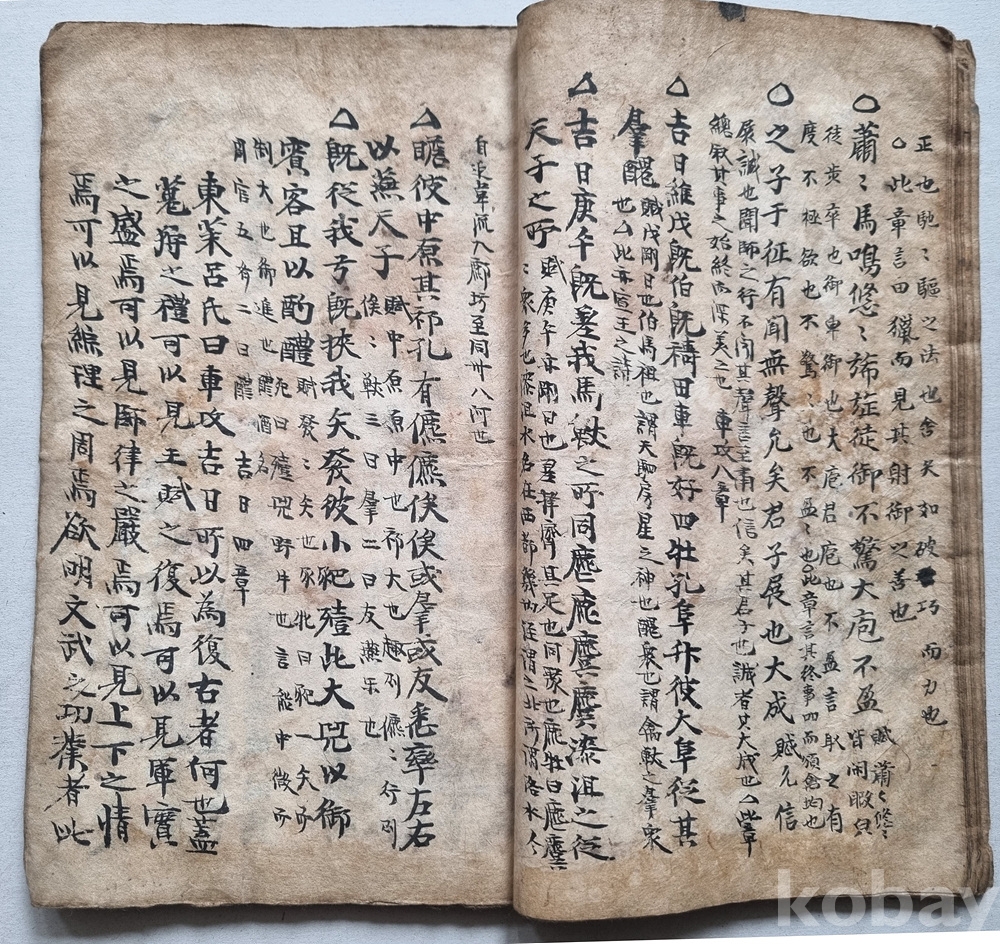 正也馳〻驅之法也舍矢如破巧而力也
○此章言田獵而見其射御之善也
○蕭〻馬鳴悠〻旆旌徒御不驚大庖不盈 賦蕭〻悠〻皆閑暇皃
徒步卒也御車御也大庖君庖也不盈言取之有
度不極欲也不驚〻也不盈〻也此章言其終事而頒禽均也
○之子于征有聞無聲允矣君子展也大成 賦允信
展誠也聞師之行不聞其聲言至肅也信矣其君子也誠哉其大成也此章
總叙其事之始終而深美之也 車攻八章
△吉日維戊既伯既禱田車既好四牡孔阜升彼大阜從其
羣醜 賦戊剛日也伯馬祖也謂天駟房星之神也醜衆也謂禽獸之羣衆
也 此亦宣王之詩
△吉日庚午既差我馬獸之所同麀鹿麌麌漆沮之從
天子之所 賦庚午亦剛日也差擇齊其足也同聚也鹿牝曰麀麌
〻衆多也漆沮水名在西都畿內涇渭之北所謂洛水今
自延韋流入鄜坊至同州入河也
△瞻彼中原其祁孔有儦儦俟俟或羣或友悉率左右
以燕天子 賦中原原中也祁大也趨則儦〻行則
俟〻獸三曰羣二曰友燕樂也
△既張我弓既挾我矢發彼小豝殪此大兕以御
賓客且以酌醴 賦發〻矢也豕牝曰豝一矢而
死曰殪兕野牛也言能中微而
制大也御進也醴酒名
周官五齊二曰醴 吉日四章
東萊呂氏曰車攻吉日所以為復古者何也蓋
蒐狩之禮可以見王賦之復焉可以見軍實
之盛焉可以見師律之嚴焉可以見上下之情
焉可以見綜理之周焉欲明文武之功業者此
kobay